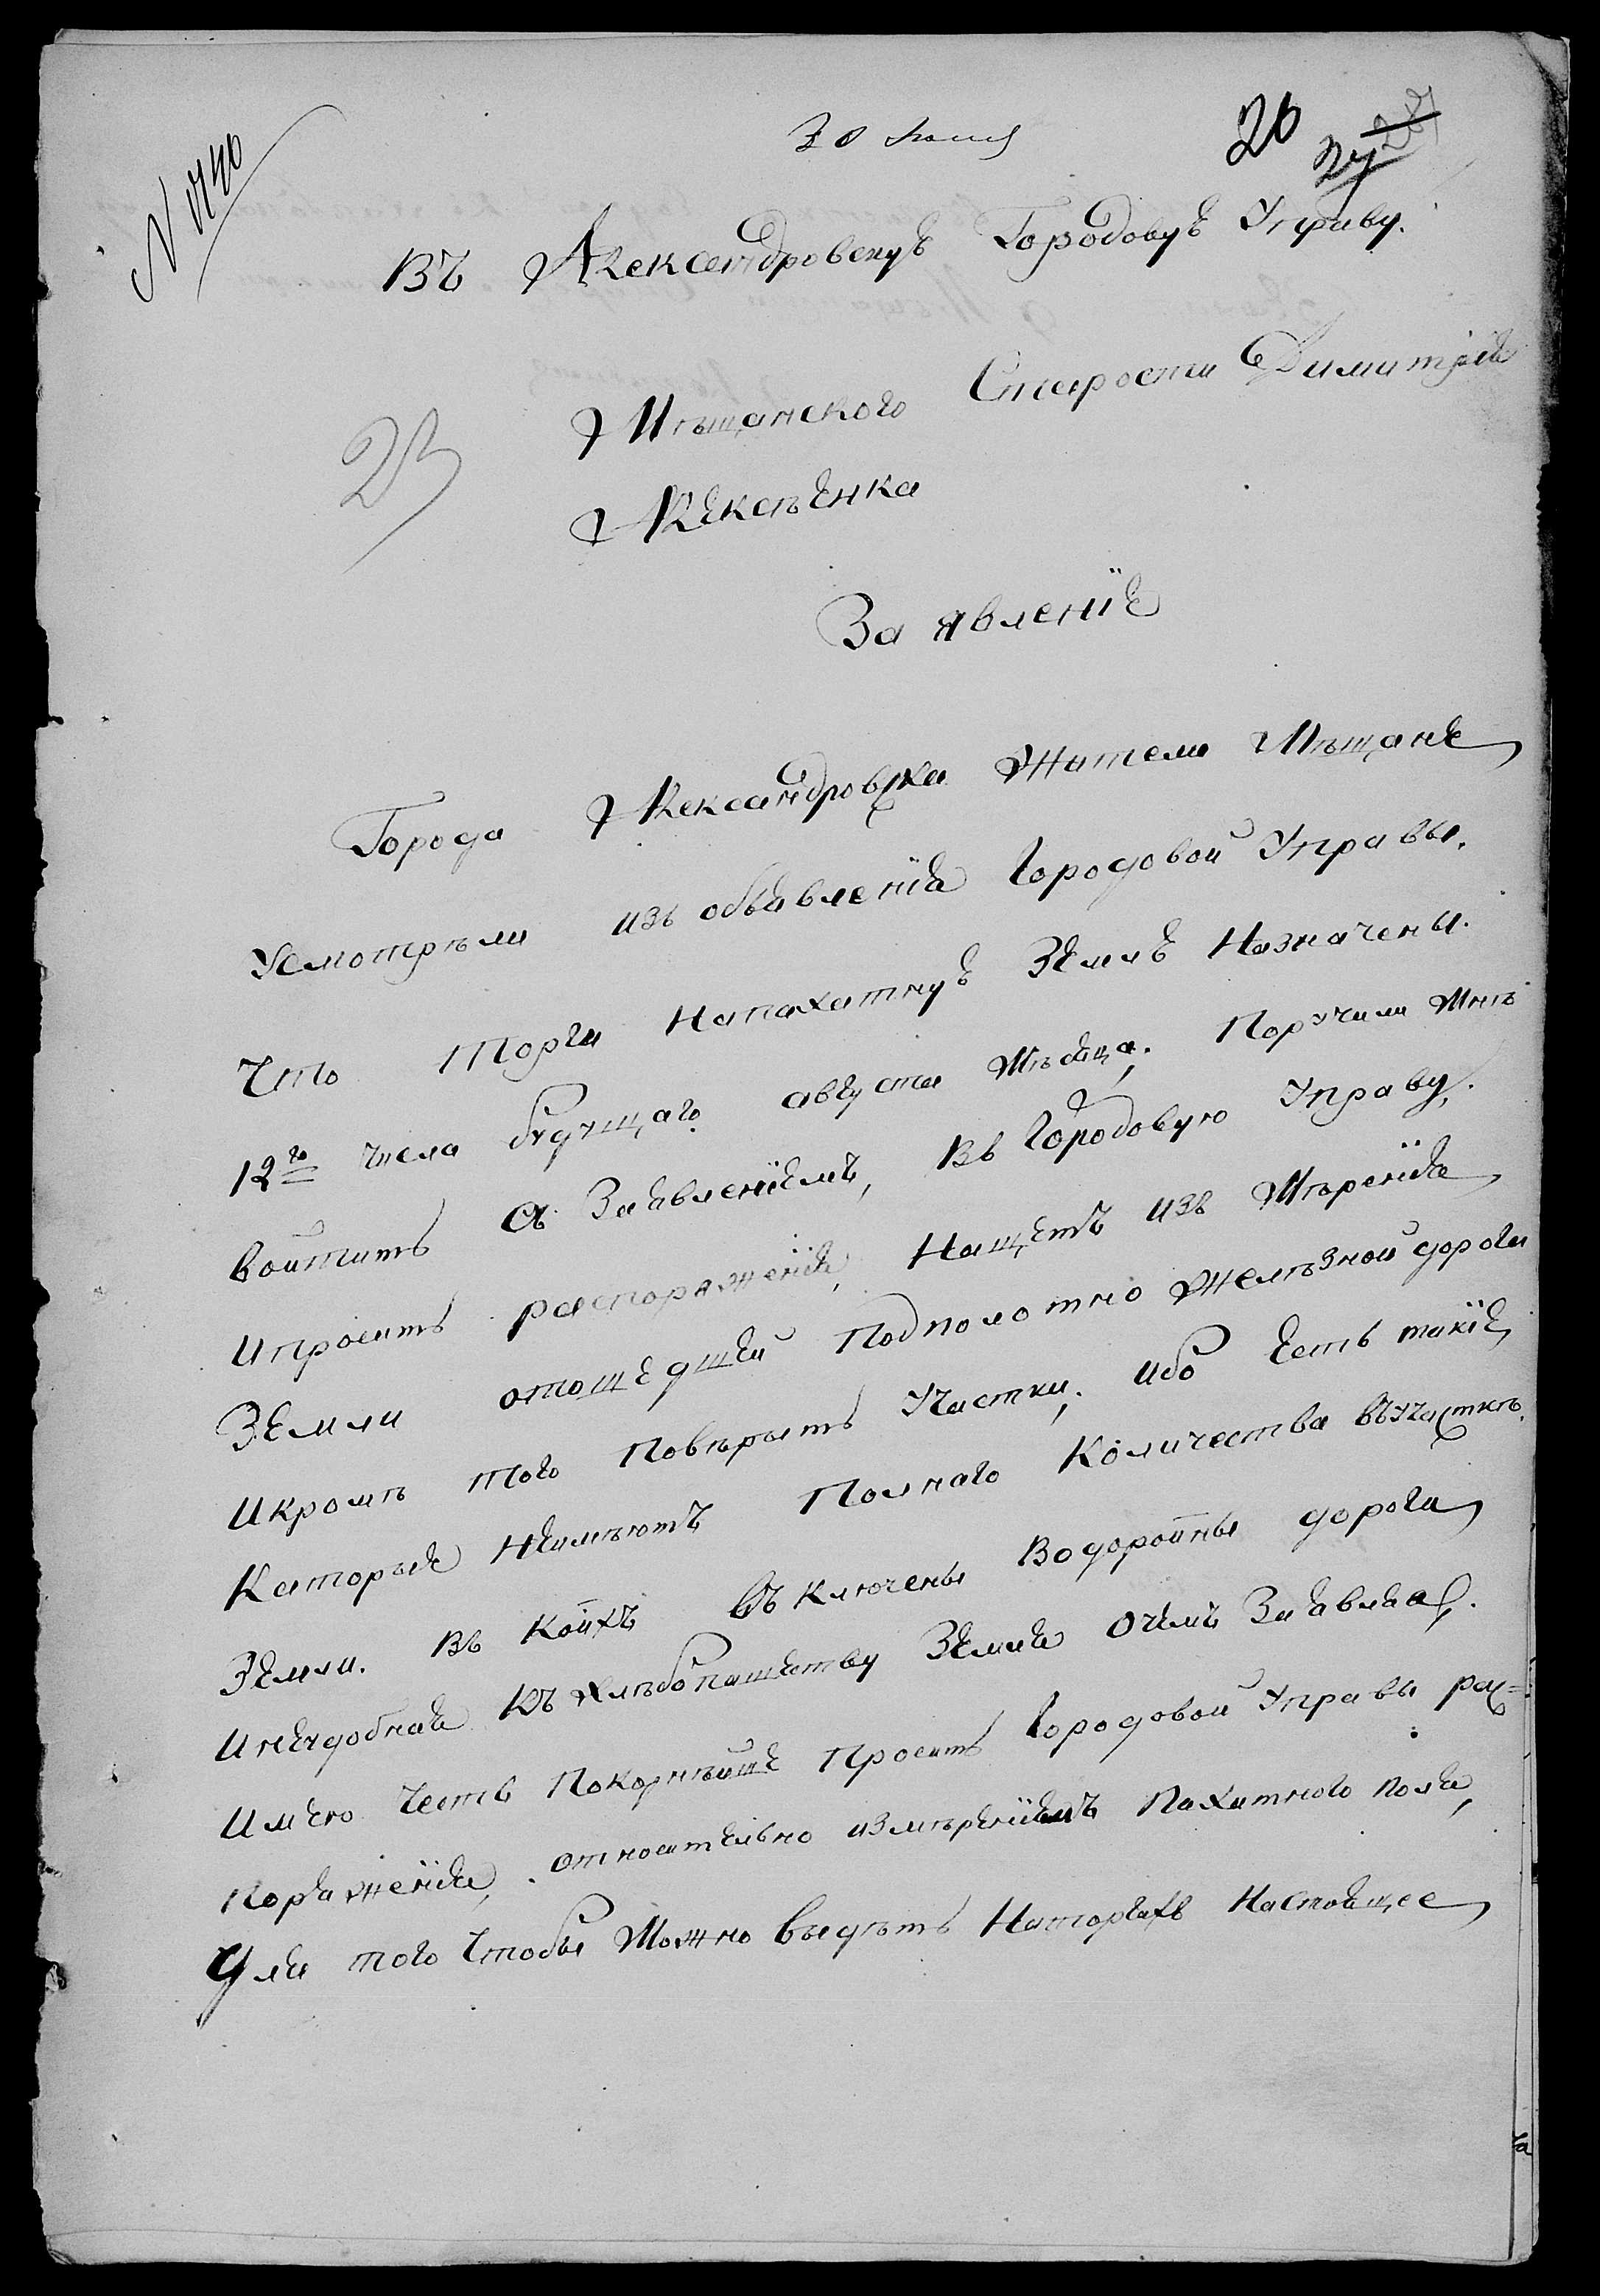 30 Июля
26
N 1740
Въ Александровскуѣ Городовуѣ Управу.
Мѣщанского Старости Димитріѣ
Алексѣенка
За явленіе
Города Александровска Жители Мѣщане
Усмотрѣли изъ объѣвленіѣ Городовой Управы,
Что Торги Напахатнуѣ Землѣ Назначены.
12го числа будущаго августа Мѣсѣца; Поручили Мнѣ
войтить съ Заѣвленіемъ, въ Городовую Управу,
ипросить распоряженіѣ, Нащетъ изъ Мѣреніѣ
Земли отошедшей Подполотно Желѣзной дороги
Икромѣ того Повѣрыть Участки; ибо Есть такіе,
Каторые Неимѣютъ Полнаго Количества въучасткѣ
Земли. въ Коихъ въключены Водороины дороги
Инеудобнаѣ Къ хлѣбопашеству Землѣ очемъ Заѣвлѣѣ.
Имею Честь Покорнѣише Просить Городовой Управы рас=
порѣженіѣ, относительно измѣреніемъ Пахатного полѣ,
Для того Чтобы Можно выдѣть Наторгахъ Настоѣщее